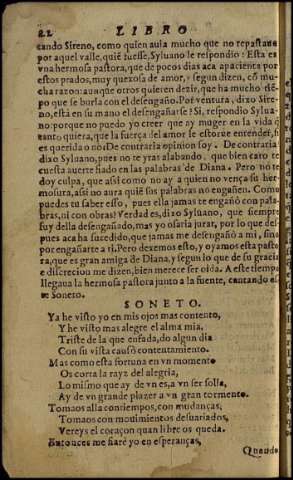 82 LIBRO
tando Sireno, como quien auia mucho que no repastaua
por aquel valle, quié fuesse, Syluano le respondio: Esta es
vna hermosa pastora, que de pocos dias aca apacienta por
estos prados, muy quexosa de amor, y segun dizen, cõ mu-
cha razon: aunque otros quieren dezir, que ha mucho tié-
po que se burla con el desengaño. Por ventura, dixo Sire-
no, està en su mano el desengañarse? Si, respondio Sylua-
no: porque no puedo yo creer que ay muger en la vida q̃
tanto quiera, que la fuerça del amor le estorue entender, si
es querida o no: De contraria opinion soy. De contraria
dixo Syluano, pues no te yras alabando, que bien caro te
cuesta auerte fiado en las palabras de Diana. Pero no te
doy culpa, que assi como no ay a quien no vença su her-
mosura, assi no aura quié sus palabras no engañen. Como
puedes tu saber esso, pues ella jamas te engañò con pala-
bras, ni con obras? Verdad es, dixo Syluano, que siempre
fuy della desengañado, mas yo osaria jurar, por lo que des-
pues aca ha sucedido, que jamas me desengañò a mi, sino
por engañarte a ti. Pero dexemos esto, y oyamos esta pasto
ra, que es gran amiga de Diana, y segun lo que de su gracia
e discrecion me dizen, bien merece ser oida. A este tiempo
llegaua la hermosa pastora junto a la fuente, cantando este
Soneto.
SONETO.
Ya he visto yo en mis ojos mas contento,
Y he visto mas alegre el alma mia,
Triste de la que enfada, do algun dia
Con su vista causò contentamiento.
Mas como esta fortuna en vn momento
Os corta la rayz del alegria,
Lo mismo que ay de vn es, a vn ser solia,
Ay de vn grande plazer a vn gran tormento.
Tomaos alla con tiempos, con mudanças,
Tomaos con mouimientos desuariados,
Vereys el coraçon quan libre os queda.
Entonces me fiarè yo en esperanças,
Quando